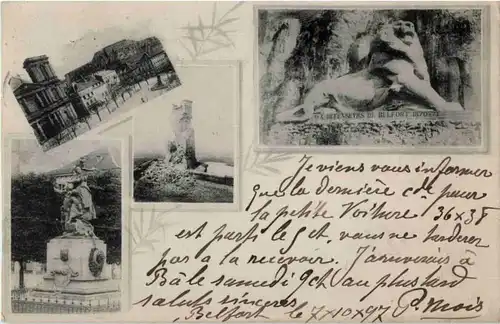 AUX DEFENSEURS DE BELFORT 1870-71
Je viens vous informer
que la dernière caisse pour
la petite Voiture 36x38
est parti le 5 ct, vous ne tarderez
pas a la recevoir. J'arriverais à
Bâle samedi 9 ct au plus tard
saluts sincères
Belfort le 7x10x97